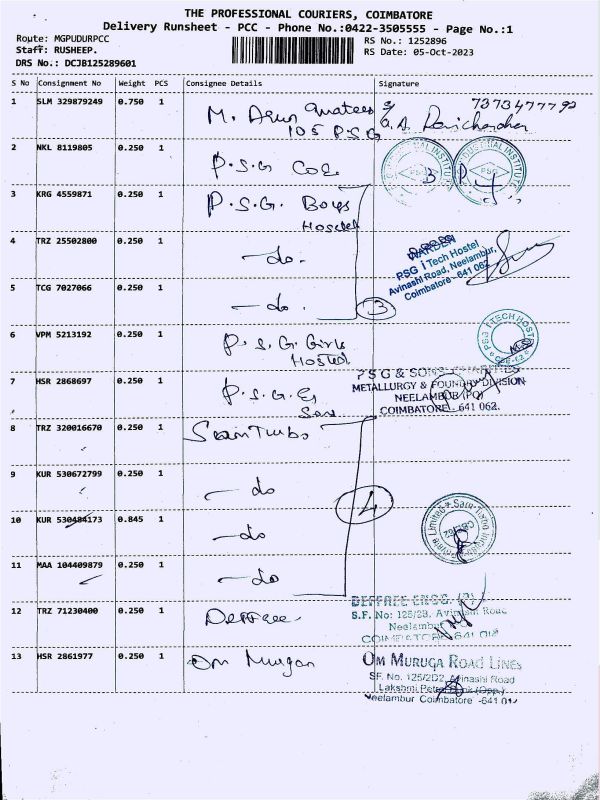 THE PROFESSIONAL COURIERS, COIMBATORE
Delivery Runsheet - PCC - Phone No.:0422-3505555 - Page No.:1
Route: MGPUDURPCC
RS No.: 1252896
Staff: RUSHEEP.
RS Date: 05-Oct-2023
DRS No.: DCJB125289601
S No Consignment No Weight PCS Consignee Details Signature
1 SLM 329879249 0.750 1 M. Arun 7373477792
105 P.S.G
2 NKL 8119805 0.250 1 P.S.G COE
INDUSTRIAL INSTITUTE PSG
3 KRG 4559871 0.250 1 P.S.G. Boys
Hostel
4 TRZ 25502800 0.250 1 -do-
WARDEN
PSG iTech Hostel
Avinashi Road, Neelambur,
Coimbatore - 641 062
5 TCG 7027066 0.250 1 -do-
3
6 VPM 5213192 0.250 1 P.S.G. Girls
Hostel
PSG iTECH HOSTEL
7 HSR 2868697 0.250 1 P.S.G &
Sons
PSG & SONS CHARITIES
METALLURGY & FOUNDRY DIVISION
NEELAMBUR (PO)
COIMBATORE 641 062.
8 TRZ 320016670 0.250 1
9 KUR 530672799 0.250 1 -do
4
10 KUR 530484173 0.845 1 -do
11 MAA 104409879 0.250 1 -do
12 TRZ 71230400 0.250 1 Deffree
DEFFREE ENGG. (P)
S.F. No: 125/2B, Avinashi Road
Neelambur
COIMBATORE 641 062
13 HSR 2861977 0.250 1 Om Murgan
OM MURUGA ROAD LINES
SF. No. 125/2D2, Avinashi Road
Lakshmi Petrol Bunk (Opp.)
Neelambur Coimbatore -641 0